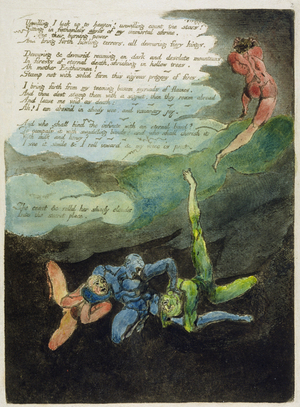 Unwilling I look up to heaven! unwilling count the stars!
Sitting in fathomless abyss of my immortal shrine.
I their burning power
bring forth howling terrors, all devouring fiery kings.
Devouring & devoured roaming on dark and desolate mountains
In forests of eternal death, shrieking in hollow trees.
Ah mother Enitharmon!
Stamp not with solid form this vig'rous progeny of fires.
I bring forth from my teeming bosom myriads of flames.
And thou dost stamp them with a signet, then they roam abroad
And leave me void as death:
Ah! I am drown'd in shady woe, and visionary joy.
And who shall bind the infinite with an eternal band?
To compass it with swaddling bands? and who shall cherish it
With milk and honey?
I see it smile & I roll inward & my voice is past.
She ceast & rolld her shady clouds
Into the secret place.